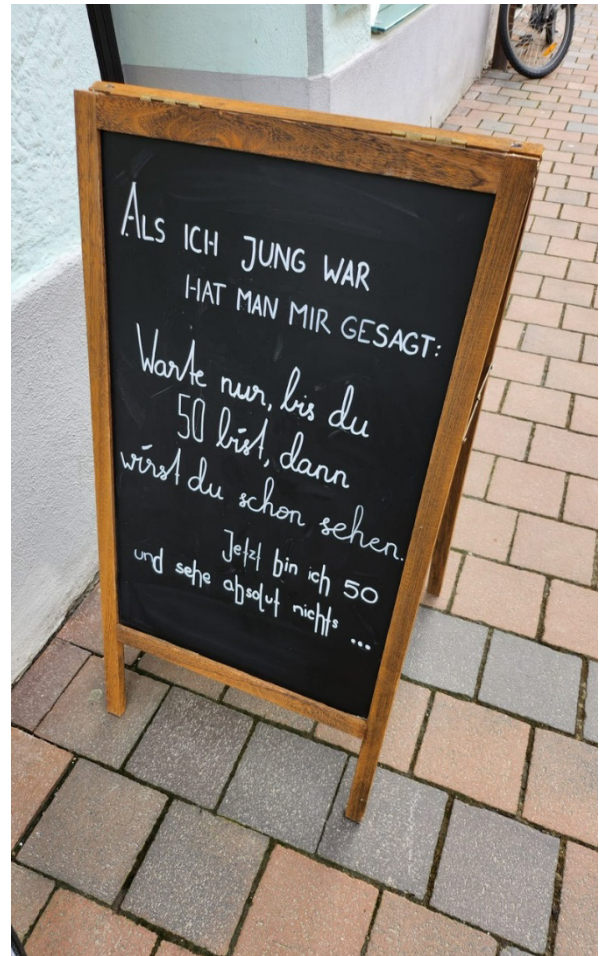 ALS ICH JUNG WAR
HAT MAN MIR GESAGT:
Warte nur, bis du
50 bist, dann
wirst du schon sehen.
Jetzt bin ich 50
und sehe absolut nichts ...